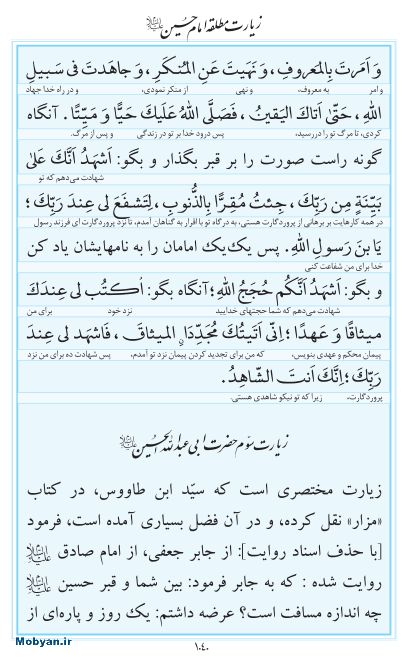 زیارت مطلقه امام حسین علیه‌السلام
وَ اَمَرتَ بِالمَعروفِ، وَ نَهَیتَ عَنِ المُنکَرِ، وَ جاهَدتَ فی سَبیلِ
و امر به معروف، و نهی از منکر نمودی، و در راه خدا جهاد
اللهِ، حَتّیٰ اَتاكَ الیَقینُ، فَصَلَّی اللهُ عَلَیكَ حَیًّا وَ مَیِّتًا. آنگاه
کردی، تا مرگ تو را دررسید، پس درود خدا بر تو در زندگی و پس از مرگ.
گونه راست صورت را بر قبر بگذار و بگو: اَشهَدُ اَنَّكَ عَلیٰ
شهادت می‌دهم که تو
بَیِّنَةٍ مِن رَبِّكَ، جِئتُ مُقِرًّا بِالذُّنوبِ، لِتَشفَعَ لی عِندَ رَبِّكَ؛
در همه کارهایت بر برهانی از پروردگارت هستی، به درگاه تو با اقرار به گناهان آمدم، تا نزد پروردگارت ای فرزند رسول
یَا بنَ رَسولِ اللهِ. پس یك‌یك امامان را به نامهایشان یاد کن
خدا برای من شفاعت کنی
و بگو: اَشهَدُ اَنَّکُم حُجَجُ اللهِ؛ آنگاه بگو: اُکتُب لی عِندَكَ
شهادت می‌دهم که شما حجتهای خدایید نزد خود برای من
میثاقًا وَ عَهدًا؛ اِنّی اَتَیتُكَ مُجَدِّدَا ۨالمیثاقِ، فَاشهَد لی عِندَ
پیمان محکم و عهدی بنویس، که من برای تجدید کردن پیمان نزد تو آمدم، پس شهادت ده برای من نزد
رَبِّكَ؛ اِنَّكَ اَنتَ الشّاهِدُ.
پروردگارت، زیرا که تو نیکو شاهدی هستی.
زیارت سوم حضرت ابی عبدالله الحسین علیه‌السلام
زیارت مختصری است که سیّد ابن طاووس، در کتاب
«مزار» نقل کرده، و در آن فضل بسیاری آمده است، فرمود
[با حذف اسناد روایت]: از جابر جعفی، از امام صادق علیه‌السلام
روایت شده : که به جابر فرمود: بین شما و قبر حسین علیه‌السلام
چه اندازه مسافت است؟ عرضه داشتم: یك روز و پاره‌ای از
Mobyan.ir
۱۰۴۰